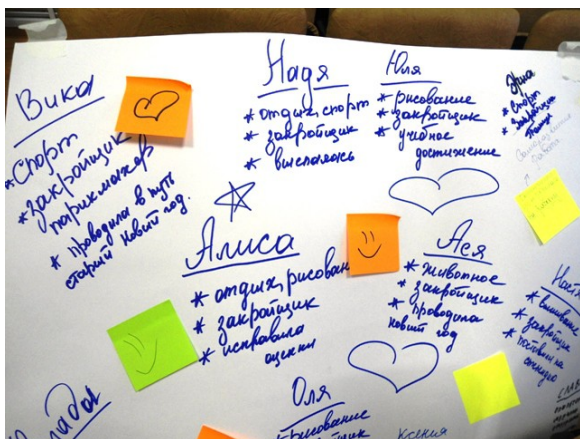 Вика
* спорт
* закройщик
парикмахер
* проводила в путь
старый новый год.
Надя
* отдых, спорт
* закройщик
* выспалась
Юля
* рисование
* закройщик
* учебное
достижение
* спорт
* закройщик
Алиса
* отдых, рисован
* закройщик
* исправила
оценки
Ася
* животное
* закройщик
* проводила
новый год
Настя
* закройщик
Оля
* рисование
Ксения